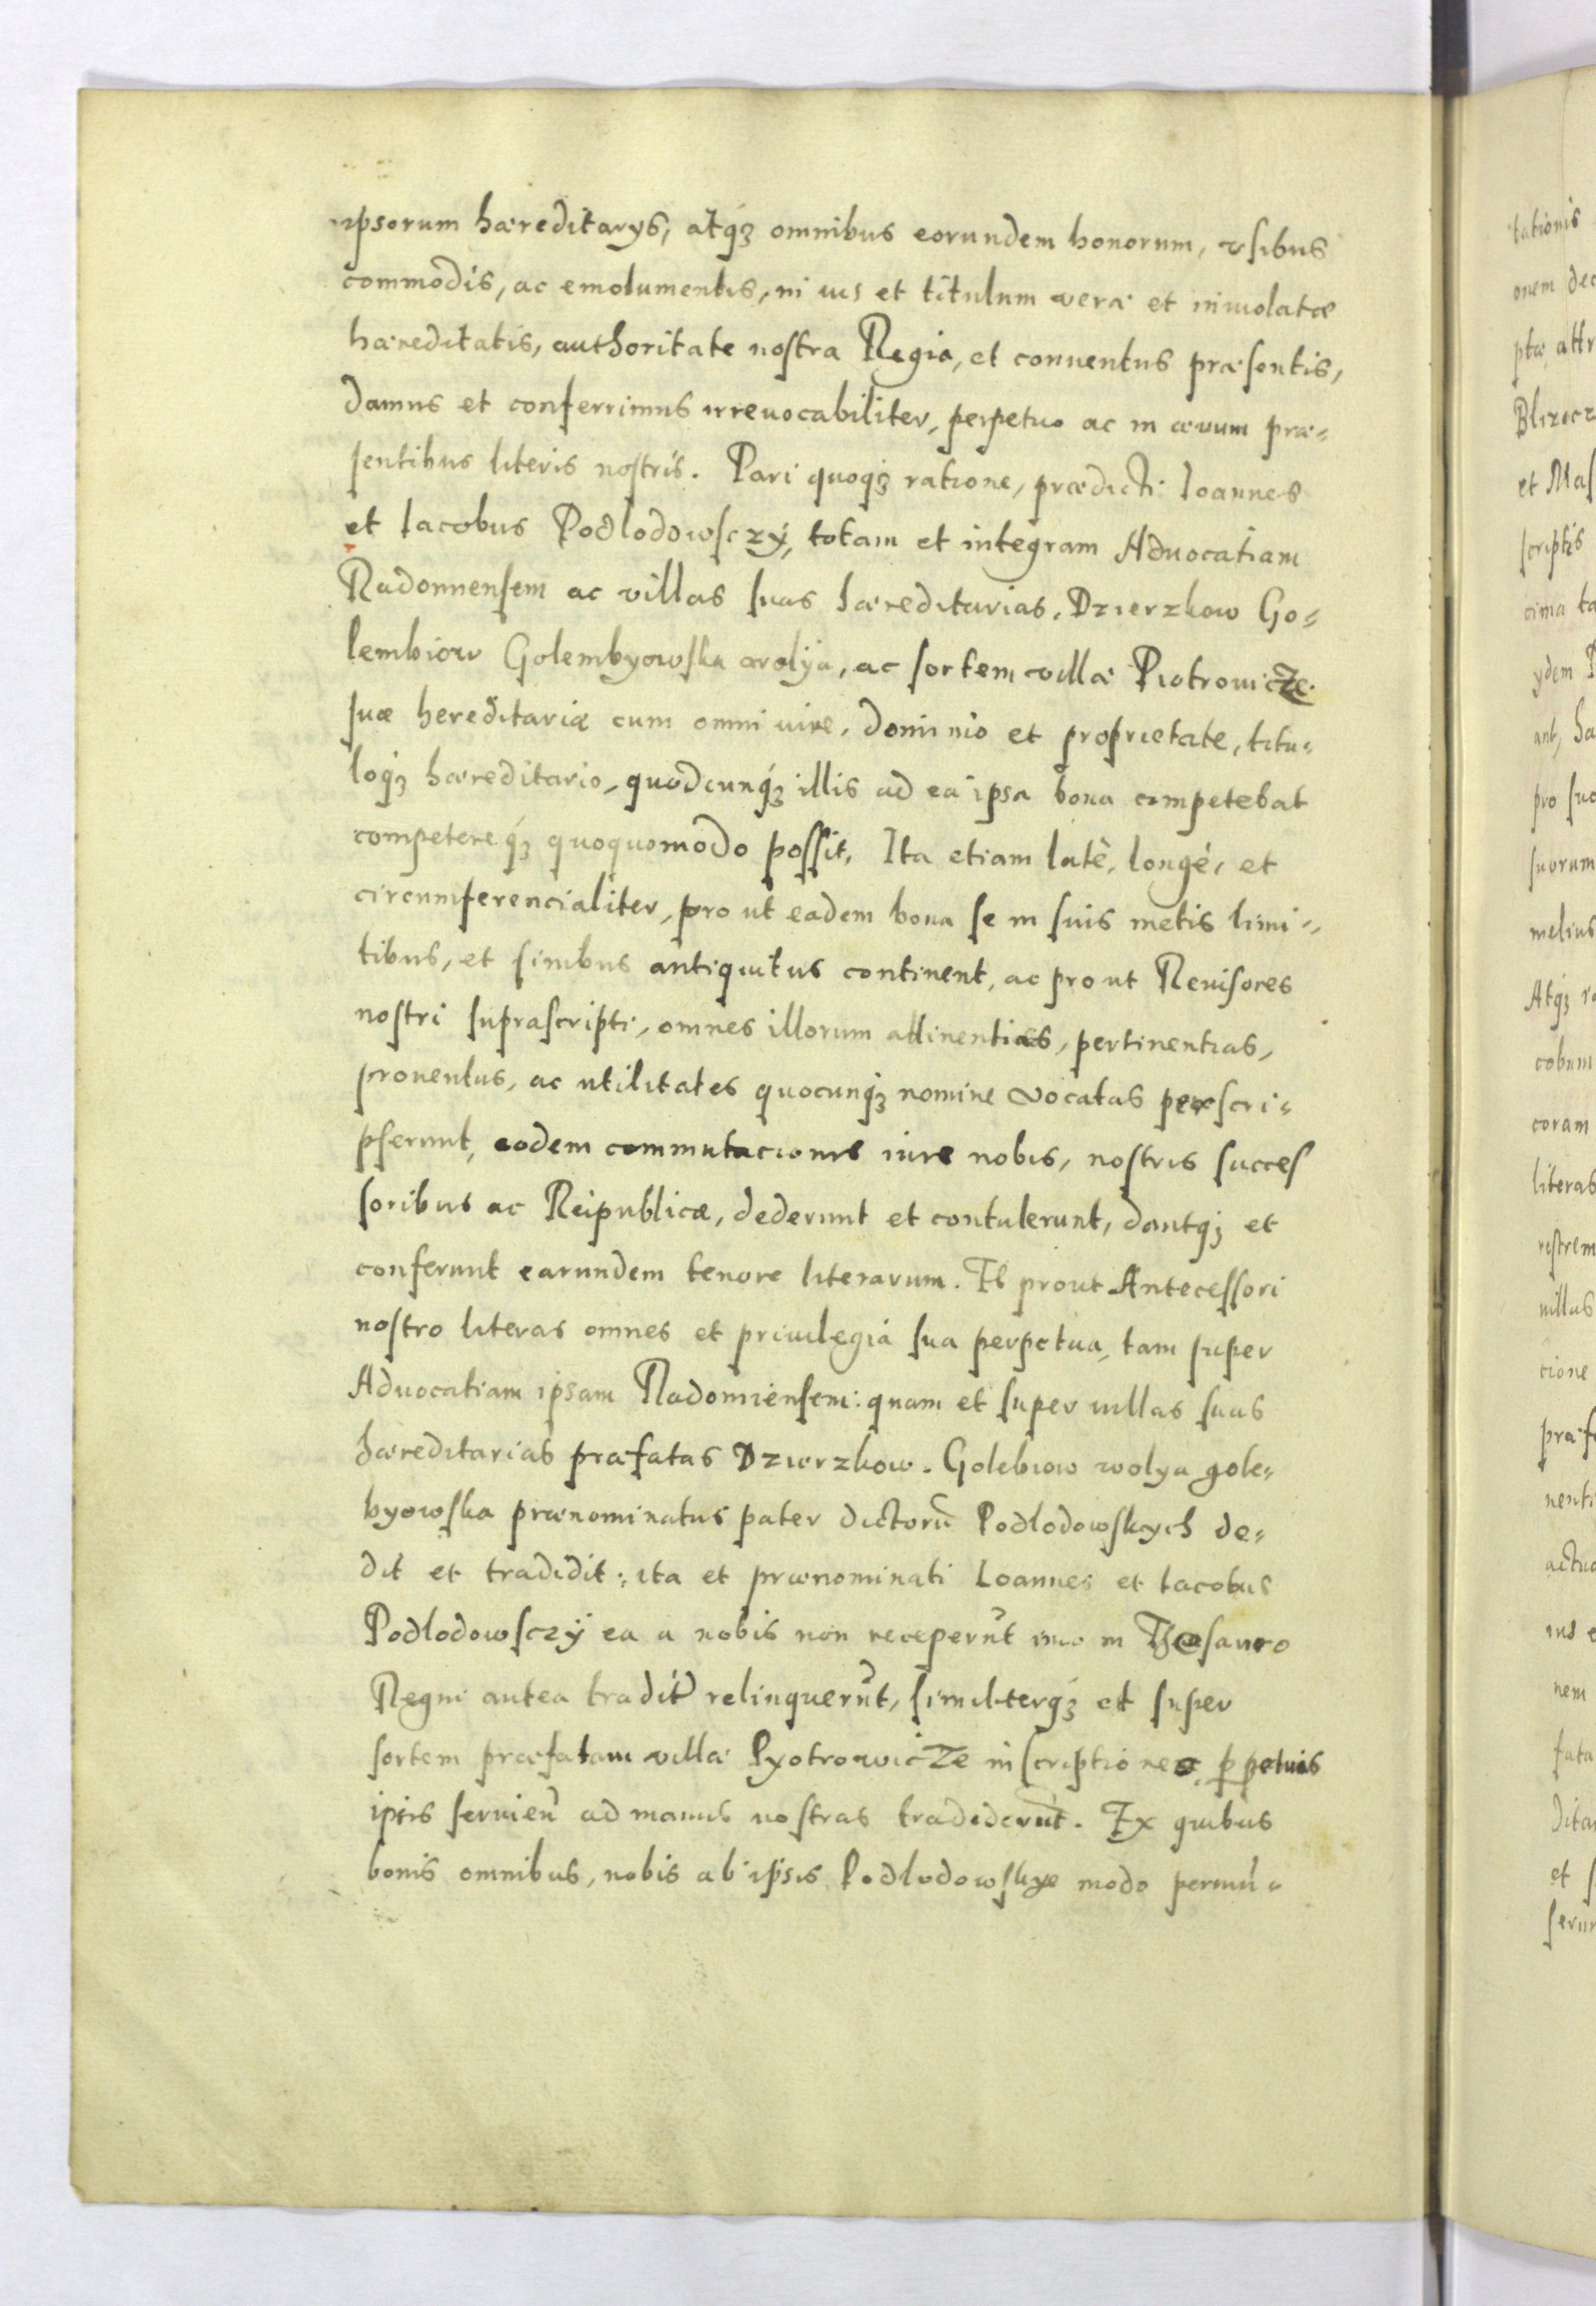 ipsorum hæreditarys, atq́ꝫ omnibus eorundem honorum, vsibus
commodis, ac emolumentis, in ius et titulum veræ et inuiolatæ
hæreditatis, authoritate nostra Regia, et conuentus præsentis,
damus et conferrimus irreuocabiliter, perpetuo ac in æuum præ-
sentibus literis nostris. Pari quoqꝫ ratione, prædicti Ioannes
et Iacobus Podlodowsczÿ, totam et integram Aduocatiam
Radomiensem ac villas suas hæreditarias, Dzierzkow Go-
lembiow Golembyowska wolya, ac sortem villæ Piotrowicze
suæ hereditariæ cum omni iure, dominio et proprietate, titu-
loq́ꝫ hæreditario, quodcunq́ꝫ illis ad ea ipsa bona competebat
competereq́ꝫ quoquomodo possit, Ita etiam latè, longé, et
circumferencialiter, pro ut eadem bona se in suis metis limi-
tibus, et finibus antiquitus continent, ac pro ut Reuisores
nostri suprascripti, omnes illorum attinentias, pertinentias,
prouentus, ac utilitates quocunq́ꝫ nomine vocatas perscri-
pserunt, eodem commutacionis iure nobis, nostris succes
soribus ac Reipublicæ, dederunt et contulerunt, dantqꝫ et
conferunt earundem tenore literarum. Et prout Antecessori
nostro literas omnes et priuilegia sua perpetua, tam super
Aduocatiam ipsam Radomiensem: quam et super uillas suas
hæreditarias præfatas Dzierzkow. Golebiow wolya gole-
byowska prænominatus pater dictorū Podlodowskych de-
dit et tradidit: ita et prænominati Ioannes et Iacobus
Podlodowsczÿ ea a nobis non receperūt imo in Thesauro
Regni antea tradit relinquerūt, similiterq́ꝫ et super
sortem præfatam villæ Pyotrowicze inscriptiones ꝑpetuis
ipsis seruieñ ad manus nostras tradiderūt. Ex quibus
bonis omnibus, nobis ab ipsis Podlodowskye modo permu-
tationis
onem dec
ptæ attr
et Mas
scriptis
cima ta
ydem P
ant, ha
pro suo
suorum
melius
Atqꝫ
cobum
coram
literas
uillas
cione
præf
nenti
nem
fata
et